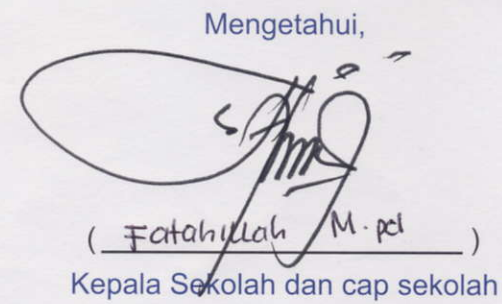 Mengetahui,
( Fatahillah M.pd )
Kepala Sekolah dan cap sekolah